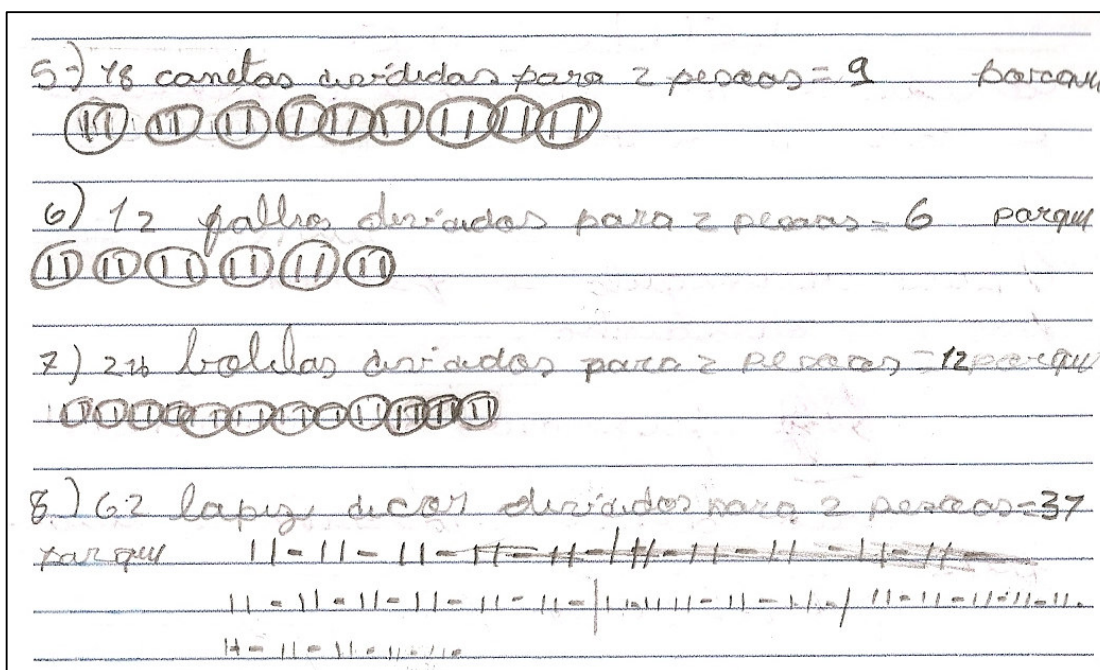 5-) 18 canetas devididas para 2 pesoas = 9 porque
6) 12 palhos deviados para 2 pesoas = 6 parqui
7) 24 boldas deviados para 2 pesoas = 12 parqui
8) 62 lapiz decor deviados para 2 pesoas = 37
parqui 11 - 11 - 11 - 11 - 11 - 11 - 11 - 11 - 11 - 11 -
11 - 11 - 11 - 11 - 11 - 11 - | 11 - 11 11 - 11 - 11 - / 11 - 11 - 11 - 11 - 11.
11 - 11 - 11 - 11 - 11 -